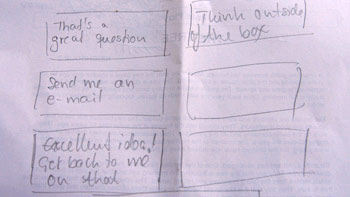 That's a
great question
Think outside
of the box
Send me an
e-mail
Excellent idea!
Get back to me
on that